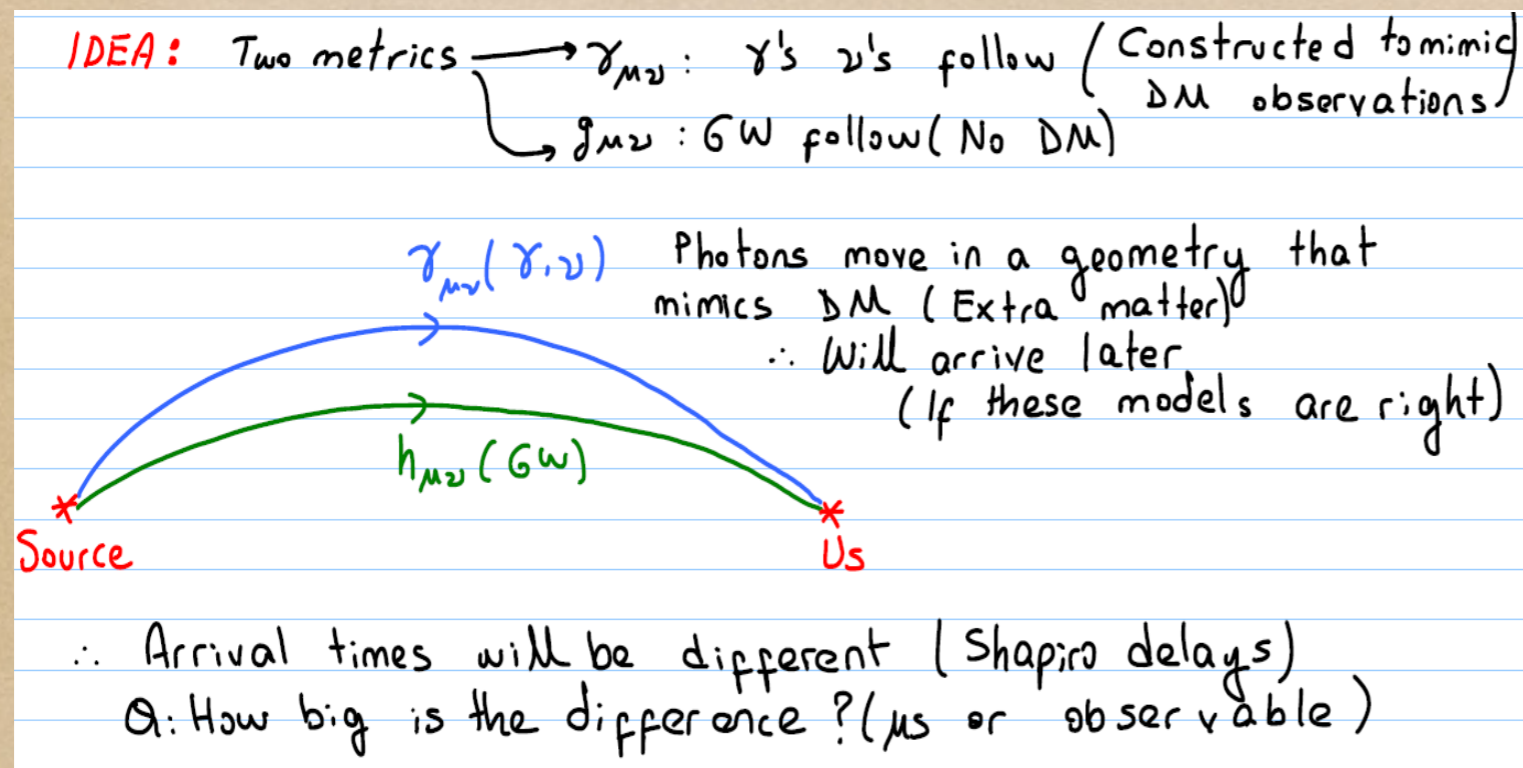 IDEA: Two metrics → γμν: γ's ν's follow (Constructed to mimic
DM observations)
→ gμν: GW follow (No DM)
γμν(γ,ν) Photons move in a geometry that
mimics DM (Extra matter)
∴ Will arrive later
(If these models are right)
hμν(GW)
Source
Us
∴ Arrival times will be different (Shapiro delays)
Q: How big is the difference? (μs or observable)